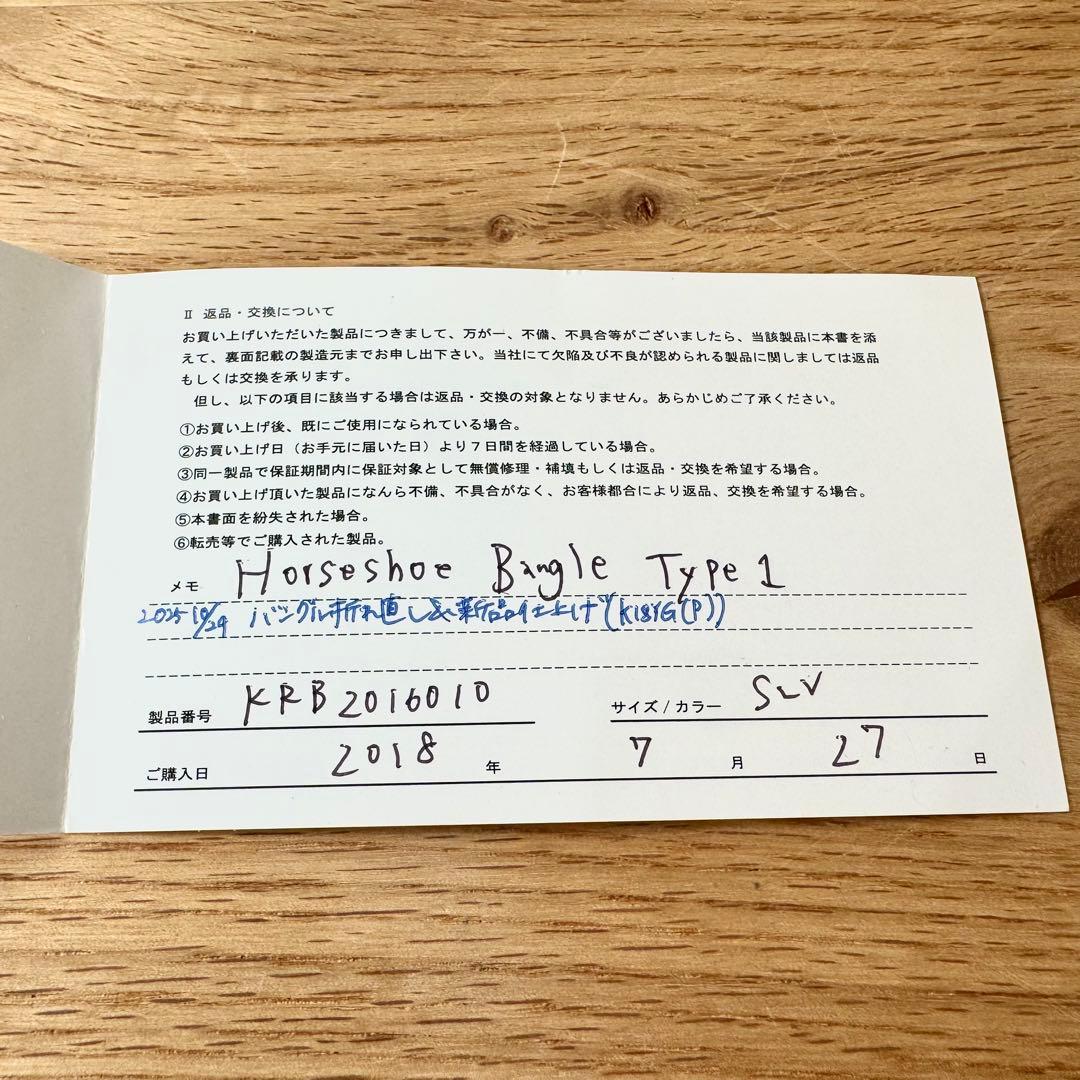 Ⅱ 返品・交換について
お買い上げいただいた製品につきまして、万が一、不備、不具合等がございましたら、当該製品に本書を添
えて、裏面記載の製造元までお申し出下さい。当社にて欠陥及び不良が認められる製品に関しましては返品
もしくは交換を承ります。
但し、以下の項目に該当する場合は返品・交換の対象となりません。あらかじめご了承ください。
①お買い上げ後、既にご使用になられている場合。
②お買い上げ日（お手元に届いた日）より７日間を経過している場合。
③同一製品で保証期間内に保証対象として無償修理・補填もしくは返品・交換を希望する場合。
④お買い上げ頂いた製品になんら不備、不具合がなく、お客様都合により返品、交換を希望する場合。
⑤本書面を紛失された場合。
⑥転売等でご購入された製品。
メモ Horseshoe Bangle Type 1
2025 10/29 バングル折れ直し&新品仕上げ(K18YG(P))
製品番号 KRB2016010 サイズ / カラー SLV
ご購入日 2018 年 7 月 27 日